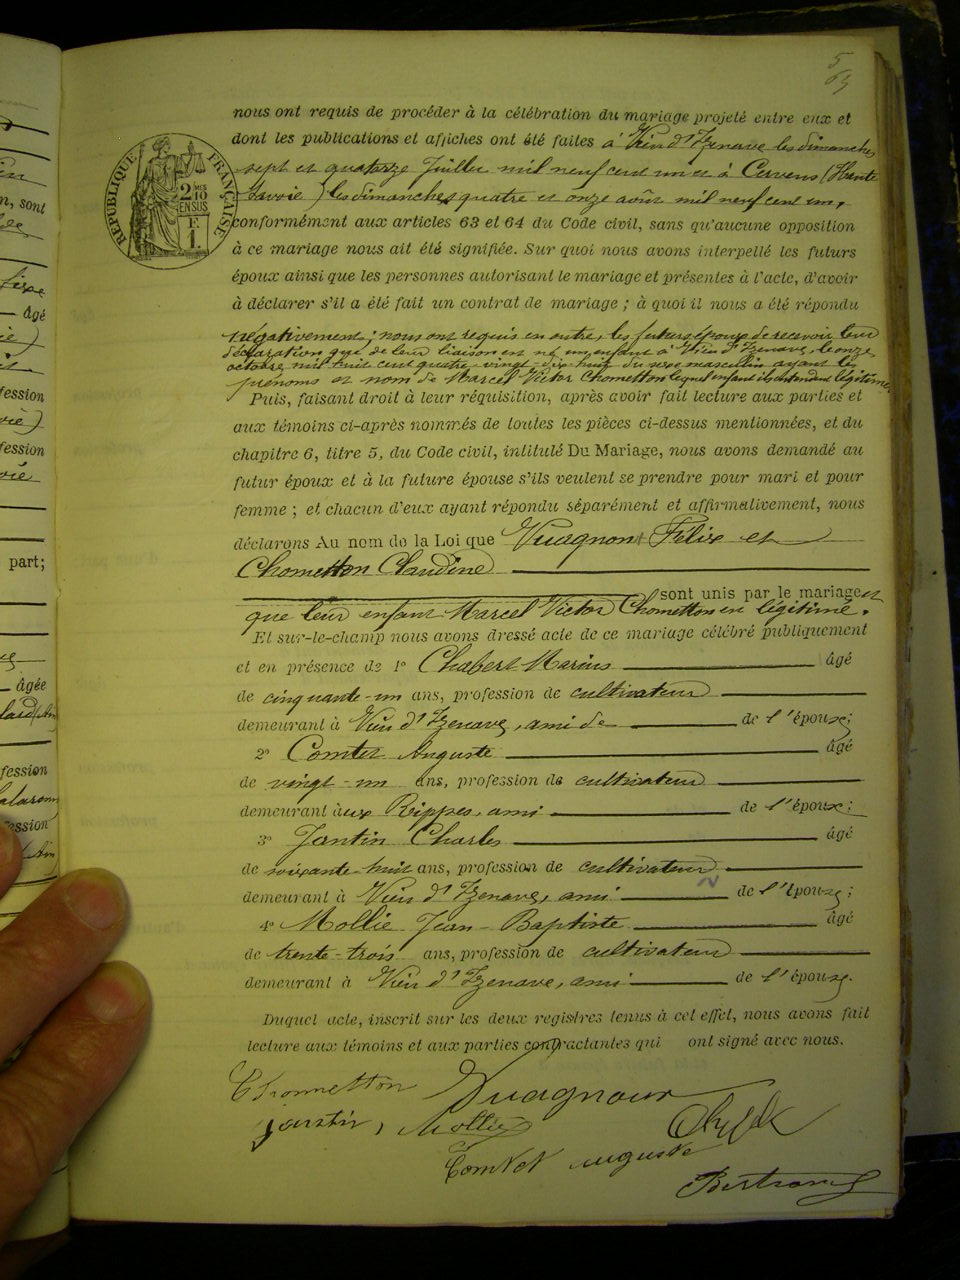 5
63
nous ont requis de procéder à la célébration du mariage projeté entre eux et
dont les publications et affiches ont été faites à Vieu d'Izenave les dimanches
sept et quatorze Juillet mil neuf cent un et à Cervens (Haute
Savoie) les dimanches quatre et onze août mil neuf cent un,
conformément aux articles 63 et 64 du Code civil, sans qu'aucune opposition
à ce mariage nous ait été signifiée. Sur quoi nous avons interpellé les futurs
époux ainsi que les personnes autorisant le mariage et présentes à l'acte, d'avoir
à déclarer s'il a été fait un contrat de mariage ; à quoi il nous a été répondu
négativement ; nous ont requis en outre, les futurs époux de recevoir leur
déclaration que de leur liaison est né un enfant à Vieu d'Izenave, le onze
octobre mil huit cent quatre-vingt-dix-huit du sexe masculin ayant les
prénoms et nom de Marcel Victor Chometton lequel enfant ils entendent légitimer
Puis, faisant droit à leur réquisition, après avoir fait lecture aux parties et
aux témoins ci-après nommés de toutes les pièces ci-dessus mentionnées, et du
chapitre 6, titre 5, du Code civil, intitulé Du Mariage, nous avons demandé au
futur époux et à la future épouse s'ils veulent se prendre pour mari et pour
femme ; et chacun d'eux ayant répondu séparément et affirmativement, nous
déclarons Au nom de la Loi que Vuagnoux Félix et
Chometton Claudine
sont unis par le mariage et
que leur enfant Marcel Victor Chometton est légitimé.
Et sur-le-champ nous avons dressé acte de ce mariage célébré publiquement
et en présence de 1° Chabert Marius âgé
de cinquante-un ans, profession de cultivateur
demeurant à Vieu d'Izenave, ami de de l'épouse;
2° Comtet Auguste âgé
de vingt-un ans, profession de cultivateur
demeurant aux Rippes, ami de l'épouse;
3° Jantin Charles âgé
de soixante-huit ans, profession de cultivateur
demeurant à Vieu d'Izenave, ami de l'épouse;
4° Mollie Jean-Baptiste âgé
de trente-trois ans, profession de cultivateur
demeurant à Vieu d'Izenave, ami de l'épouse.
Duquel acte, inscrit sur les deux registres tenus à cet effet, nous avons fait
lecture aux témoins et aux parties contractantes qui ont signé avec nous.
Chometton Vuagnoux
Jantin, Mollie
Comtet Auguste
Bertrand
RÉPUBLIQUE FRANÇAISE
2 MES 10
EN SUS
F
1.
n, sont
âgé
fession
fession
part;
âgée
fession
fession
(Ain)